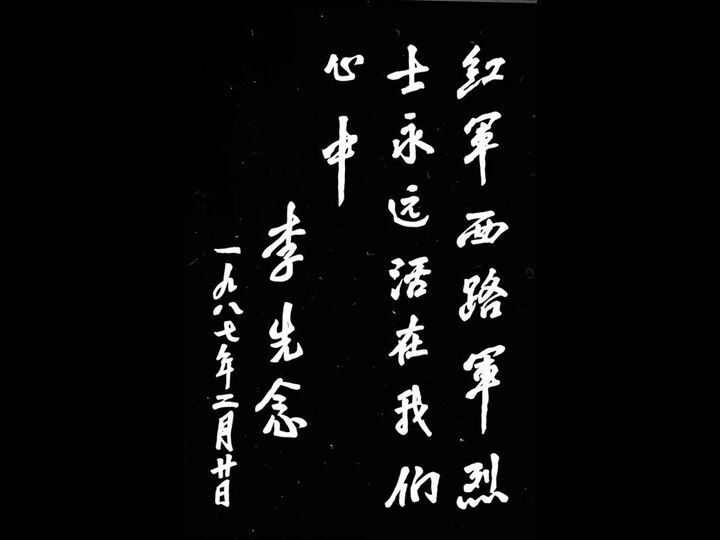 紅軍西路軍烈
士永远活在我们
心中
李先念
一九八七年二月廿日